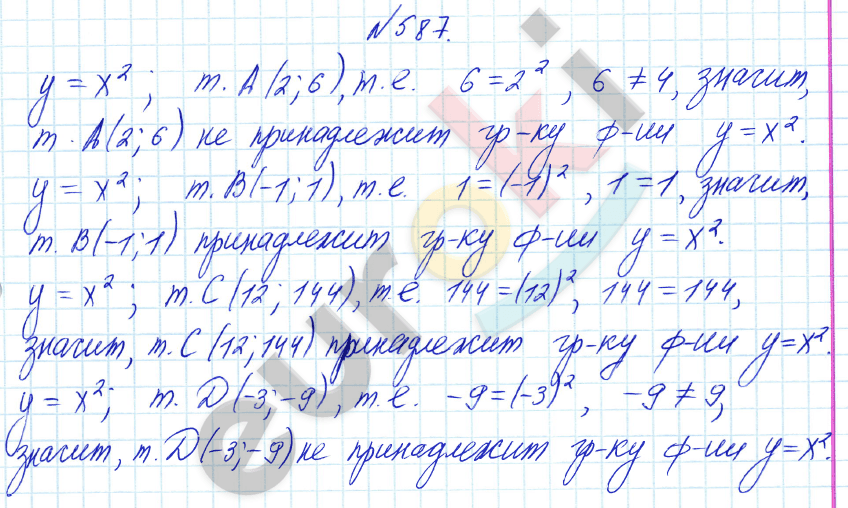 №587.
y = x²; т. А(2; 6), т.е. 6 = 2², 6 ≠ 4, значит,
т. А(2; 6) не принадлежит гр-ку ф-ии y = x².
y = x²; т. В(-1; 1), т.е. 1 = (-1)², 1 = 1, значит,
т. В(-1; 1) принадлежит гр-ку ф-ии y = x².
y = x²; т. С(12; 144), т.е. 144 = (12)², 144 = 144,
значит, т. С(12; 144) принадлежит гр-ку ф-ии y = x².
y = x²; т. D(-3; -9), т.е. -9 = (-3)², -9 ≠ 9,
значит, т. D(-3; -9) не принадлежит гр-ку ф-ии y = x².
euroki